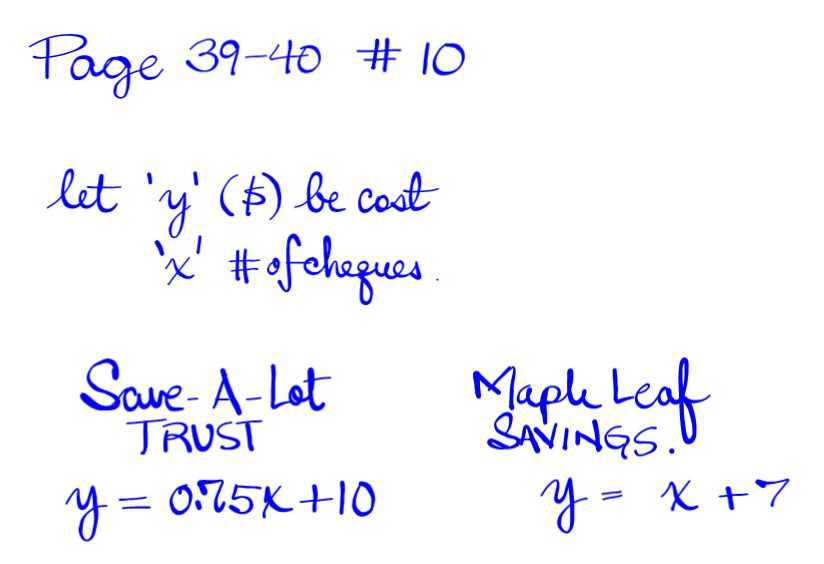 Page 39-40 # 10
let 'y' ($) be cost
'x' # of cheques.
Save-A-Lot
TRUST
y = 0.75x + 10
Maple Leaf
SAVINGS.
y = x + 7